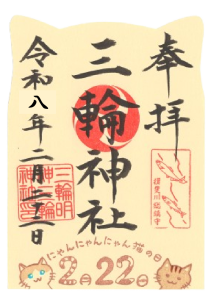 奉拝
三輪神社
令和八年二月二十二日
三輪明神三輪神社印
にゃんにゃんにゃん猫の日
2月22日